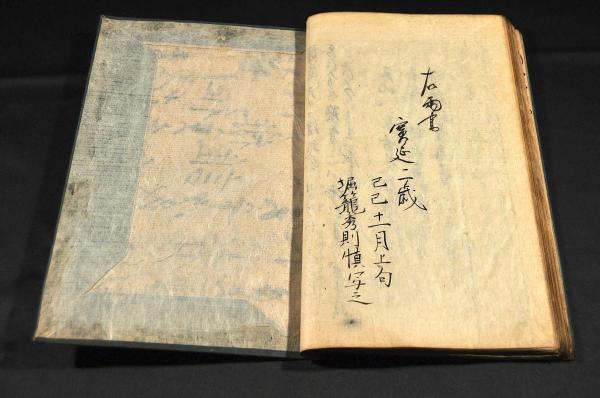 右兩書
寛延二歳
己巳十一月上旬
堀籠秀則慎写之